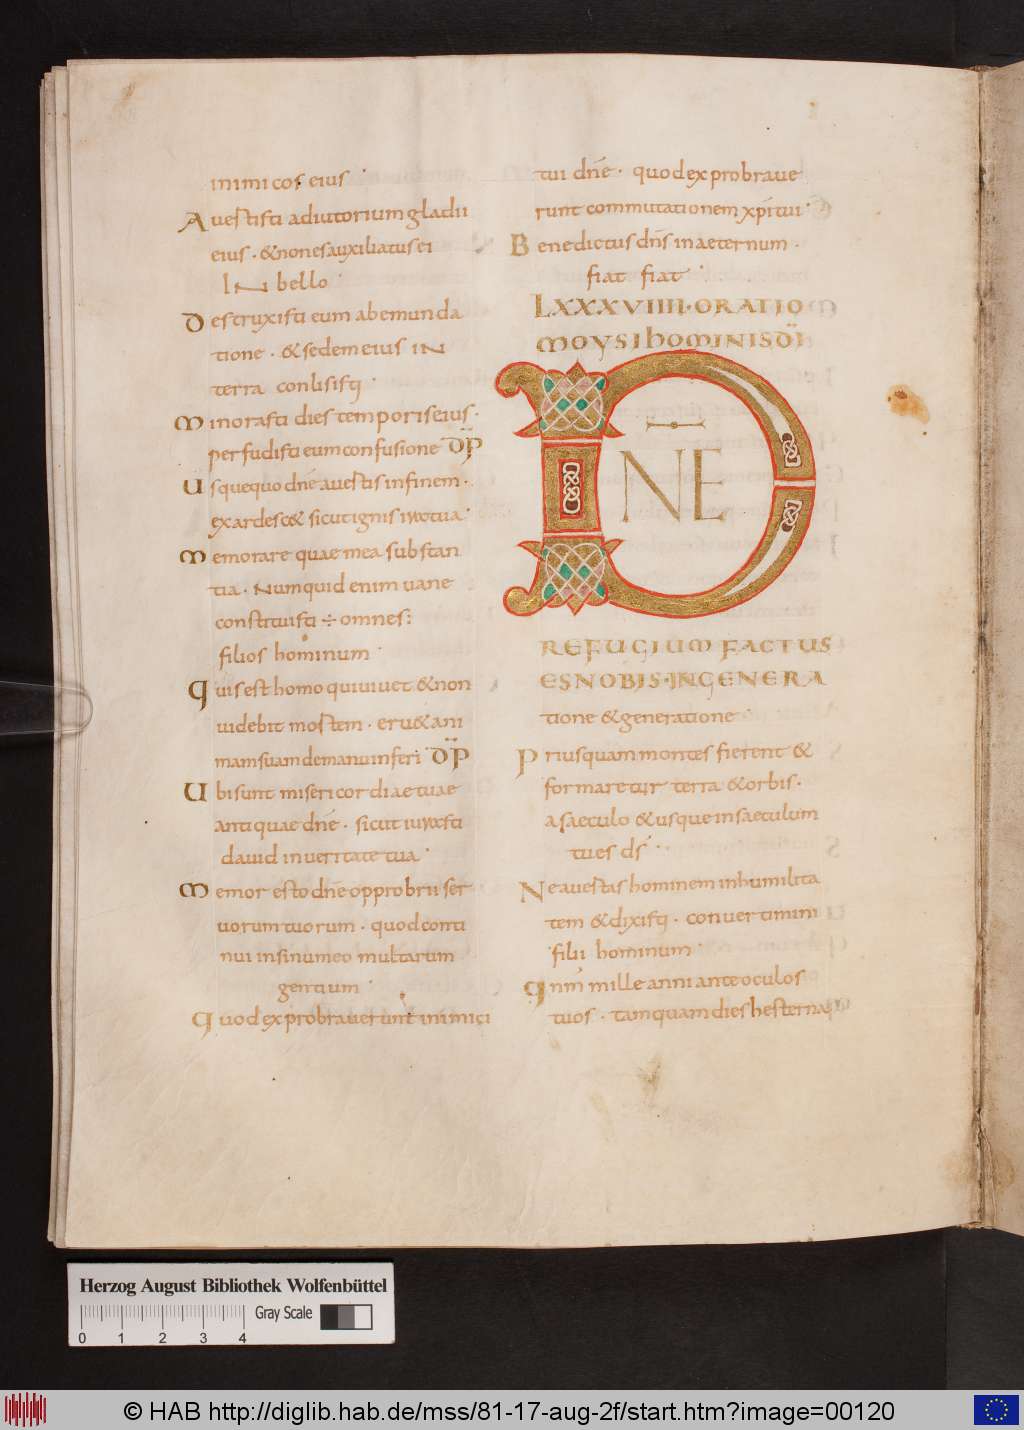 inimicos eius ·
Auertisti adiutorium gladii
eius · & non es auxiliatus ei
IN bello ·
Destruxisti eum ab emunda
tione · & sedem eius IN
terra conlisisti ·
Minorasti dies temporis eius ·
perfudisti eum confusione DP̄
Usquequo dn̄e auertis in finem ·
exardesc& sicut ignis ira tua ·
Memorare quae mea substan
tia · Numquid enim uane
constituisti ÷ omnes:
filios hominum ·
Quis est homo qui uiuet & non
uidebit mortem · eru& ani
mam suam de manu inferi DP̄
Ubi sunt misericordiae tuae
antiquae dn̄e · sicut iurasti
dauid in ueritate tua ·
Memor esto dn̄e opprobrii ser
uorum tuorum · quod conti
nui in sinu meo multarum
gentium ·
Quod exprobrauerunt inimici
tui dn̄e · quod exprobraue
runt commutationem xp̄i tui ·
Benedictus dn̄s in aeternum ·
fiat fiat ·
LXXXVIIII · ORATIO
MOYSI HOMINIS DĪ
DNE
REFUGIUM FACTUS
ES NOBIS · IN GENERA
tione & generatione ·
Priusquam montes fierent &
formaretur terra & orbis ·
a saeculo & usque in saeculum
tu es ds̄ ·
Ne auertas hominem in humilita
tem & dixisti · conuertimini
filii hominum ·
Qnm̄ mille anni ante oculos
tuos · tamquam dies hesterna
Herzog August Bibliothek Wolfenbüttel
Gray Scale
0 1 2 3 4
© HAB http://diglib.hab.de/mss/81-17-aug-2f/start.htm?image=00120